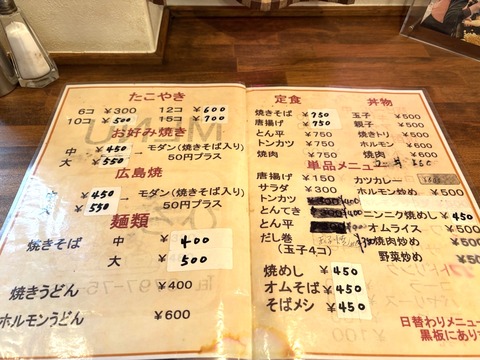 たこやき
6コ ¥300 12コ ¥600
10コ ¥500 15コ ¥700
お好み焼き
中 ¥450 → モダン(焼きそば入り)
大 ¥550 50円プラス
広島焼
大 ¥450 → モダン(焼きそば入り)
大 ¥550 50円プラス
麺類
焼きそば 中 ¥400
大 ¥500
焼きうどん ¥400
ホルモンうどん ¥600
定食
焼きそば ¥750
唐揚げ ¥750
とん平 ¥750
トンカツ ¥750
焼肉 ¥750
丼物
玉子 ¥500
親子 ¥500
焼きトリ ¥500
ホルモン ¥600
焼肉 ¥600
単品メニュー
唐揚げ ¥150
サラダ ¥300
トンカツ
とんてき
とん平
だし巻
(玉子4コ)
焼めし ¥450
オムそば ¥450
そばメシ ¥450
カツカレー
ホルモン炒め ¥500
ニンニク焼めし ¥450
オムライス ¥500
焼肉炒め ¥600
野菜炒め ¥500
日替わりメニュー
黒板にあり